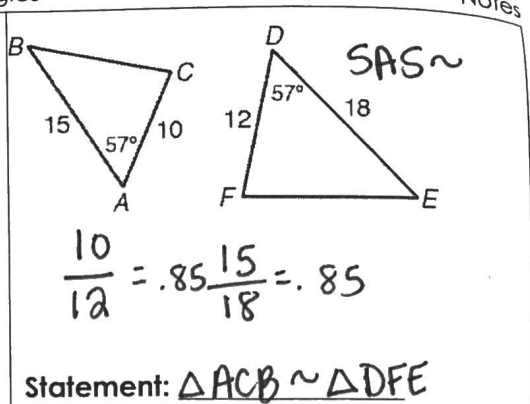 Notes
B
C
15
57°
10
A
D
SAS~
57°
12
18
F
E
10/12 = .85 15/18 = .85
Statement: △ACB ~ △DFE